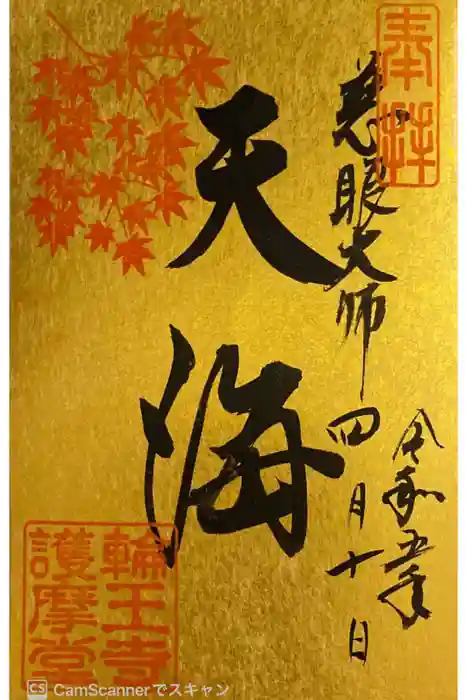 奉拝
慈眼大師
令和五年
四月十日
天海
輪王寺
護摩堂
CS CamScannerでスキャン